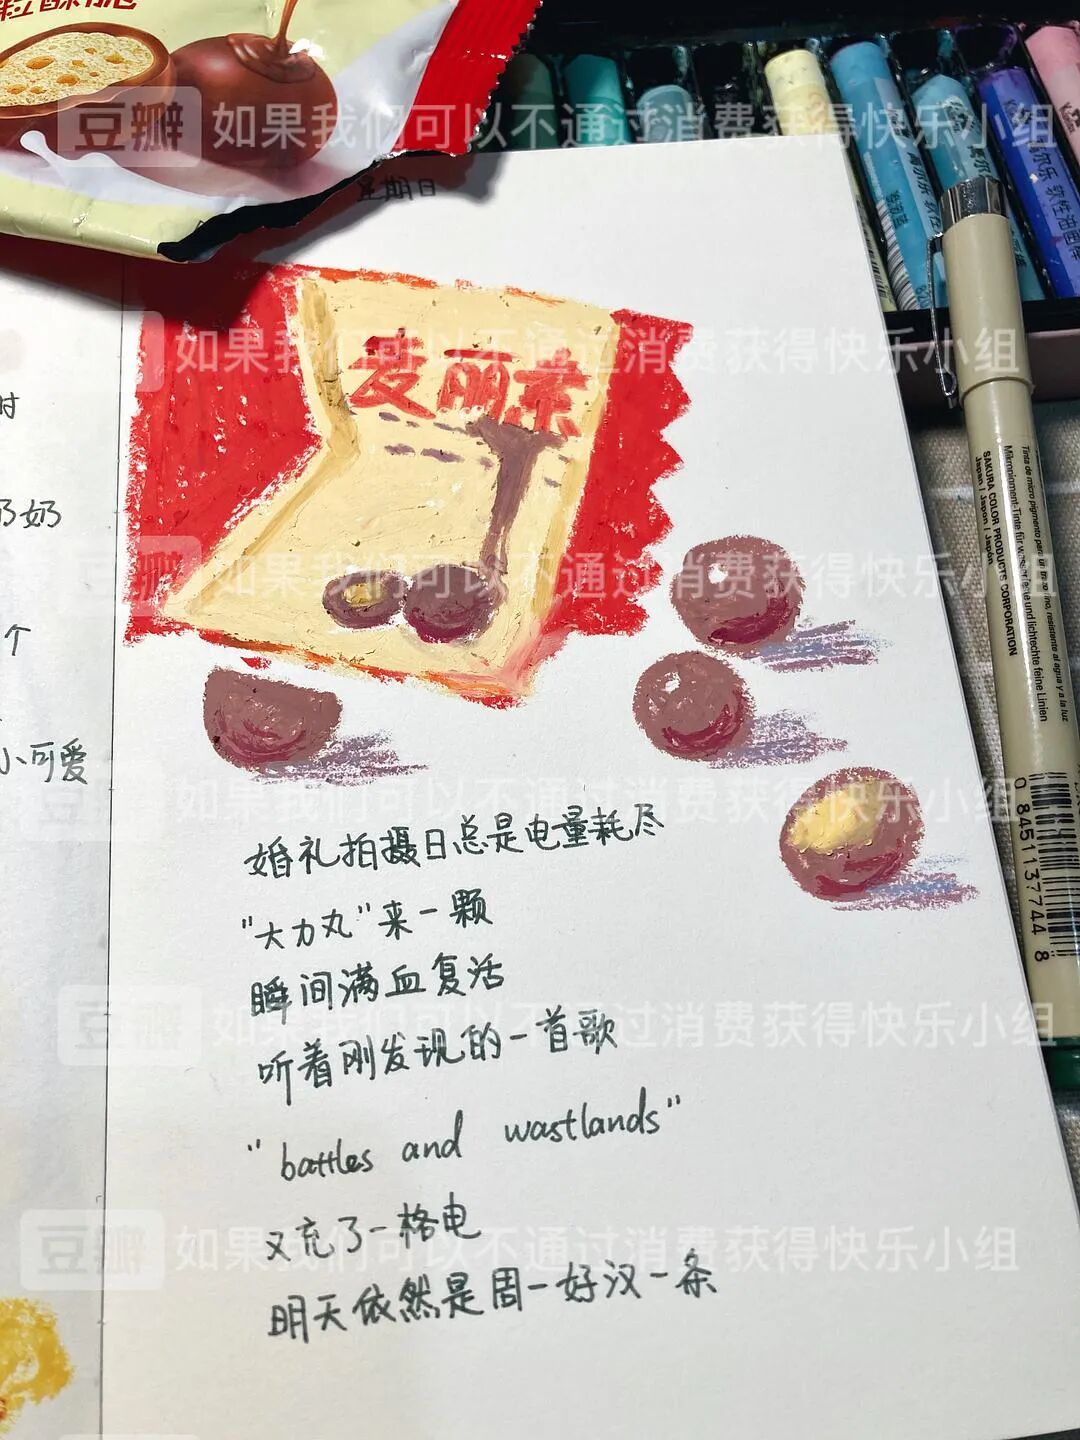 粒酥脆
星期日
麦丽素
时
奶奶
个
小可爱
婚礼拍摄日总是电量耗尽
"大力丸"来一颗
瞬间满血复活
听着刚发现的一首歌
"battles and wastlands"
又充了一格电
明天依然是周一好汉一条
软性油画棒
SAKURA COLOR PRODUCTS CORPORATION
Japan / Japon / Japón
0 84511 37744 8
豆瓣 如果我们可以不通过消费获得快乐小组
如果我们可以不通过消费获得快乐小组
豆瓣 如果我们可以不通过消费获得快乐小组
如果我们可以不通过消费获得快乐小组
豆瓣 如果我们可以不通过消费获得快乐小组
豆瓣 如果我们可以不通过消费获得快乐小组